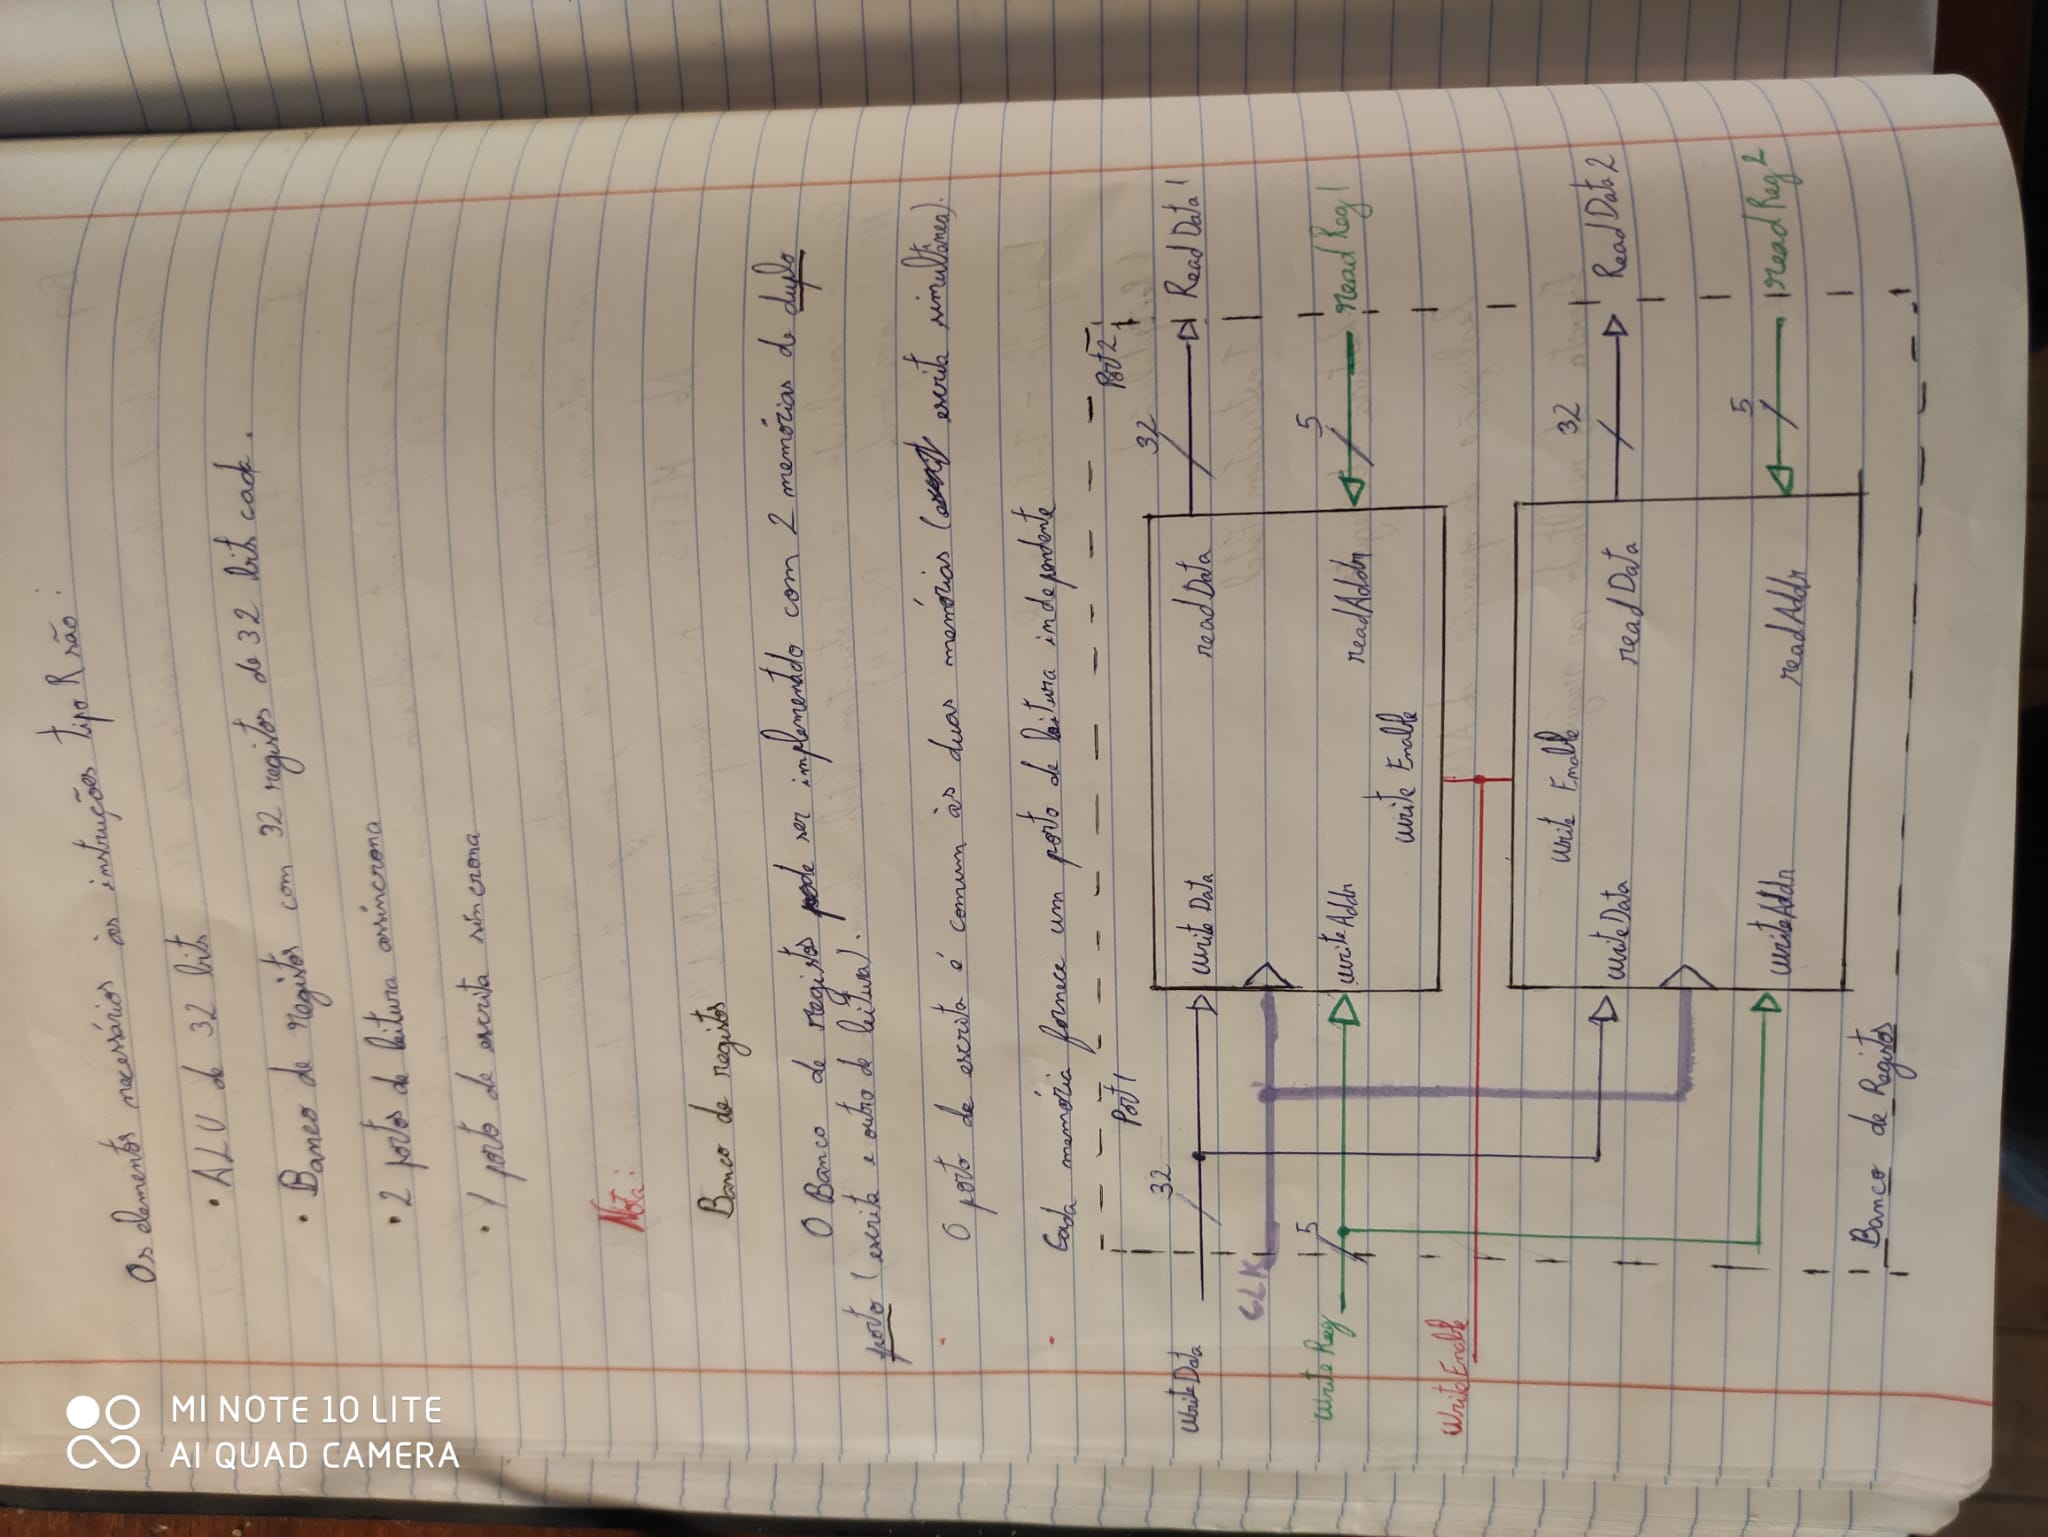 Os elementos necessários às instruções tipo R são:
• ALU de 32 bits
• Banco de registos com 32 registos de 32 bits cada.
• 2 portos de leitura assíncrona
• 1 porto de escrita síncrona
Nota:
Banco de registos
O Banco de registos pode ser implementado com 2 memórias de duplo
porto (escrita e outro de leitura).
O porto de escrita é comum às duas memórias ( escrita simultânea).
Cada memória fornece um porto de leitura independente
Port1
Port2
32
32
WriteData
writeData
readData
ReadData1
CLK
5
5
Write Reg
writeAddr
readAddr
readReg1
write Enable
Write Enable
write Enable
32
writeData
readData
ReadData2
5
writeAddr
readAddr
readReg2
Banco de Registos
MI NOTE 10 LITE
AI QUAD CAMERA